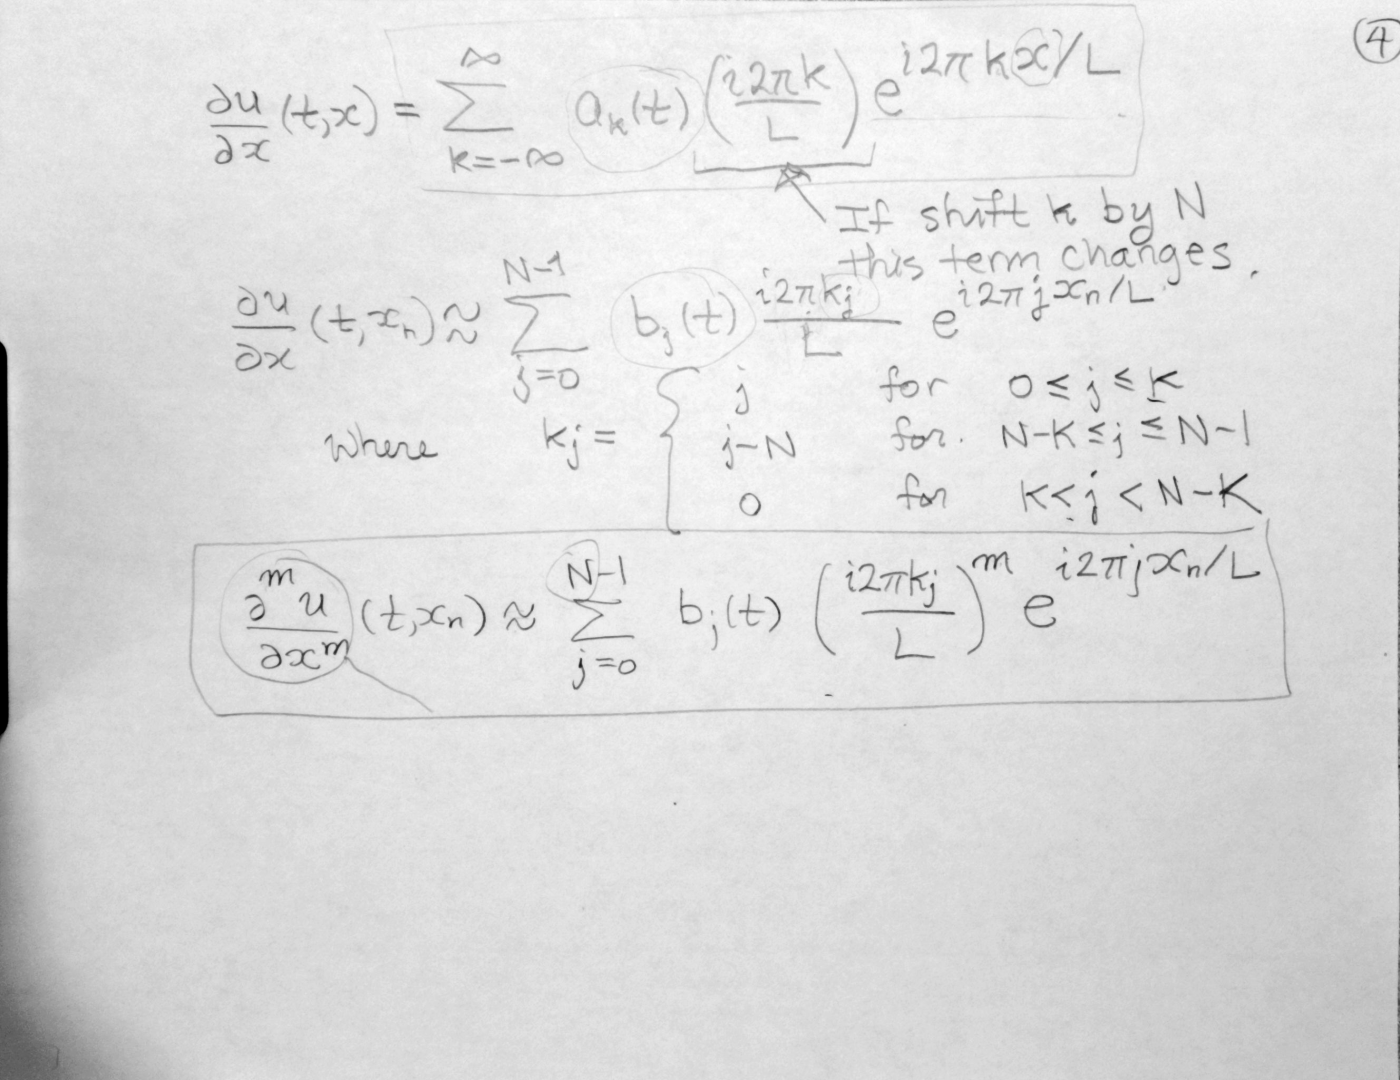 ④
∂u/∂x (t,x) = ∑_{k=-∞}^{∞} a_k(t) (i2πk/L) e^{i2πkx/L}
If shift k by N
this term changes.
∂u/∂x (t,x_n) ≈ ∑_{j=0}^{N-1} b_j(t) i2πk_j/L e^{i2πjx_n/L}
where k_j = { j for 0 ≤ j ≤ K
j-N for. N-K ≤ j ≤ N-1
0 for K < j < N-K
∂^m u/∂x^m (t,x_n) ≈ ∑_{j=0}^{N-1} b_j(t) (i2πk_j/L)^m e^{i2πjx_n/L}